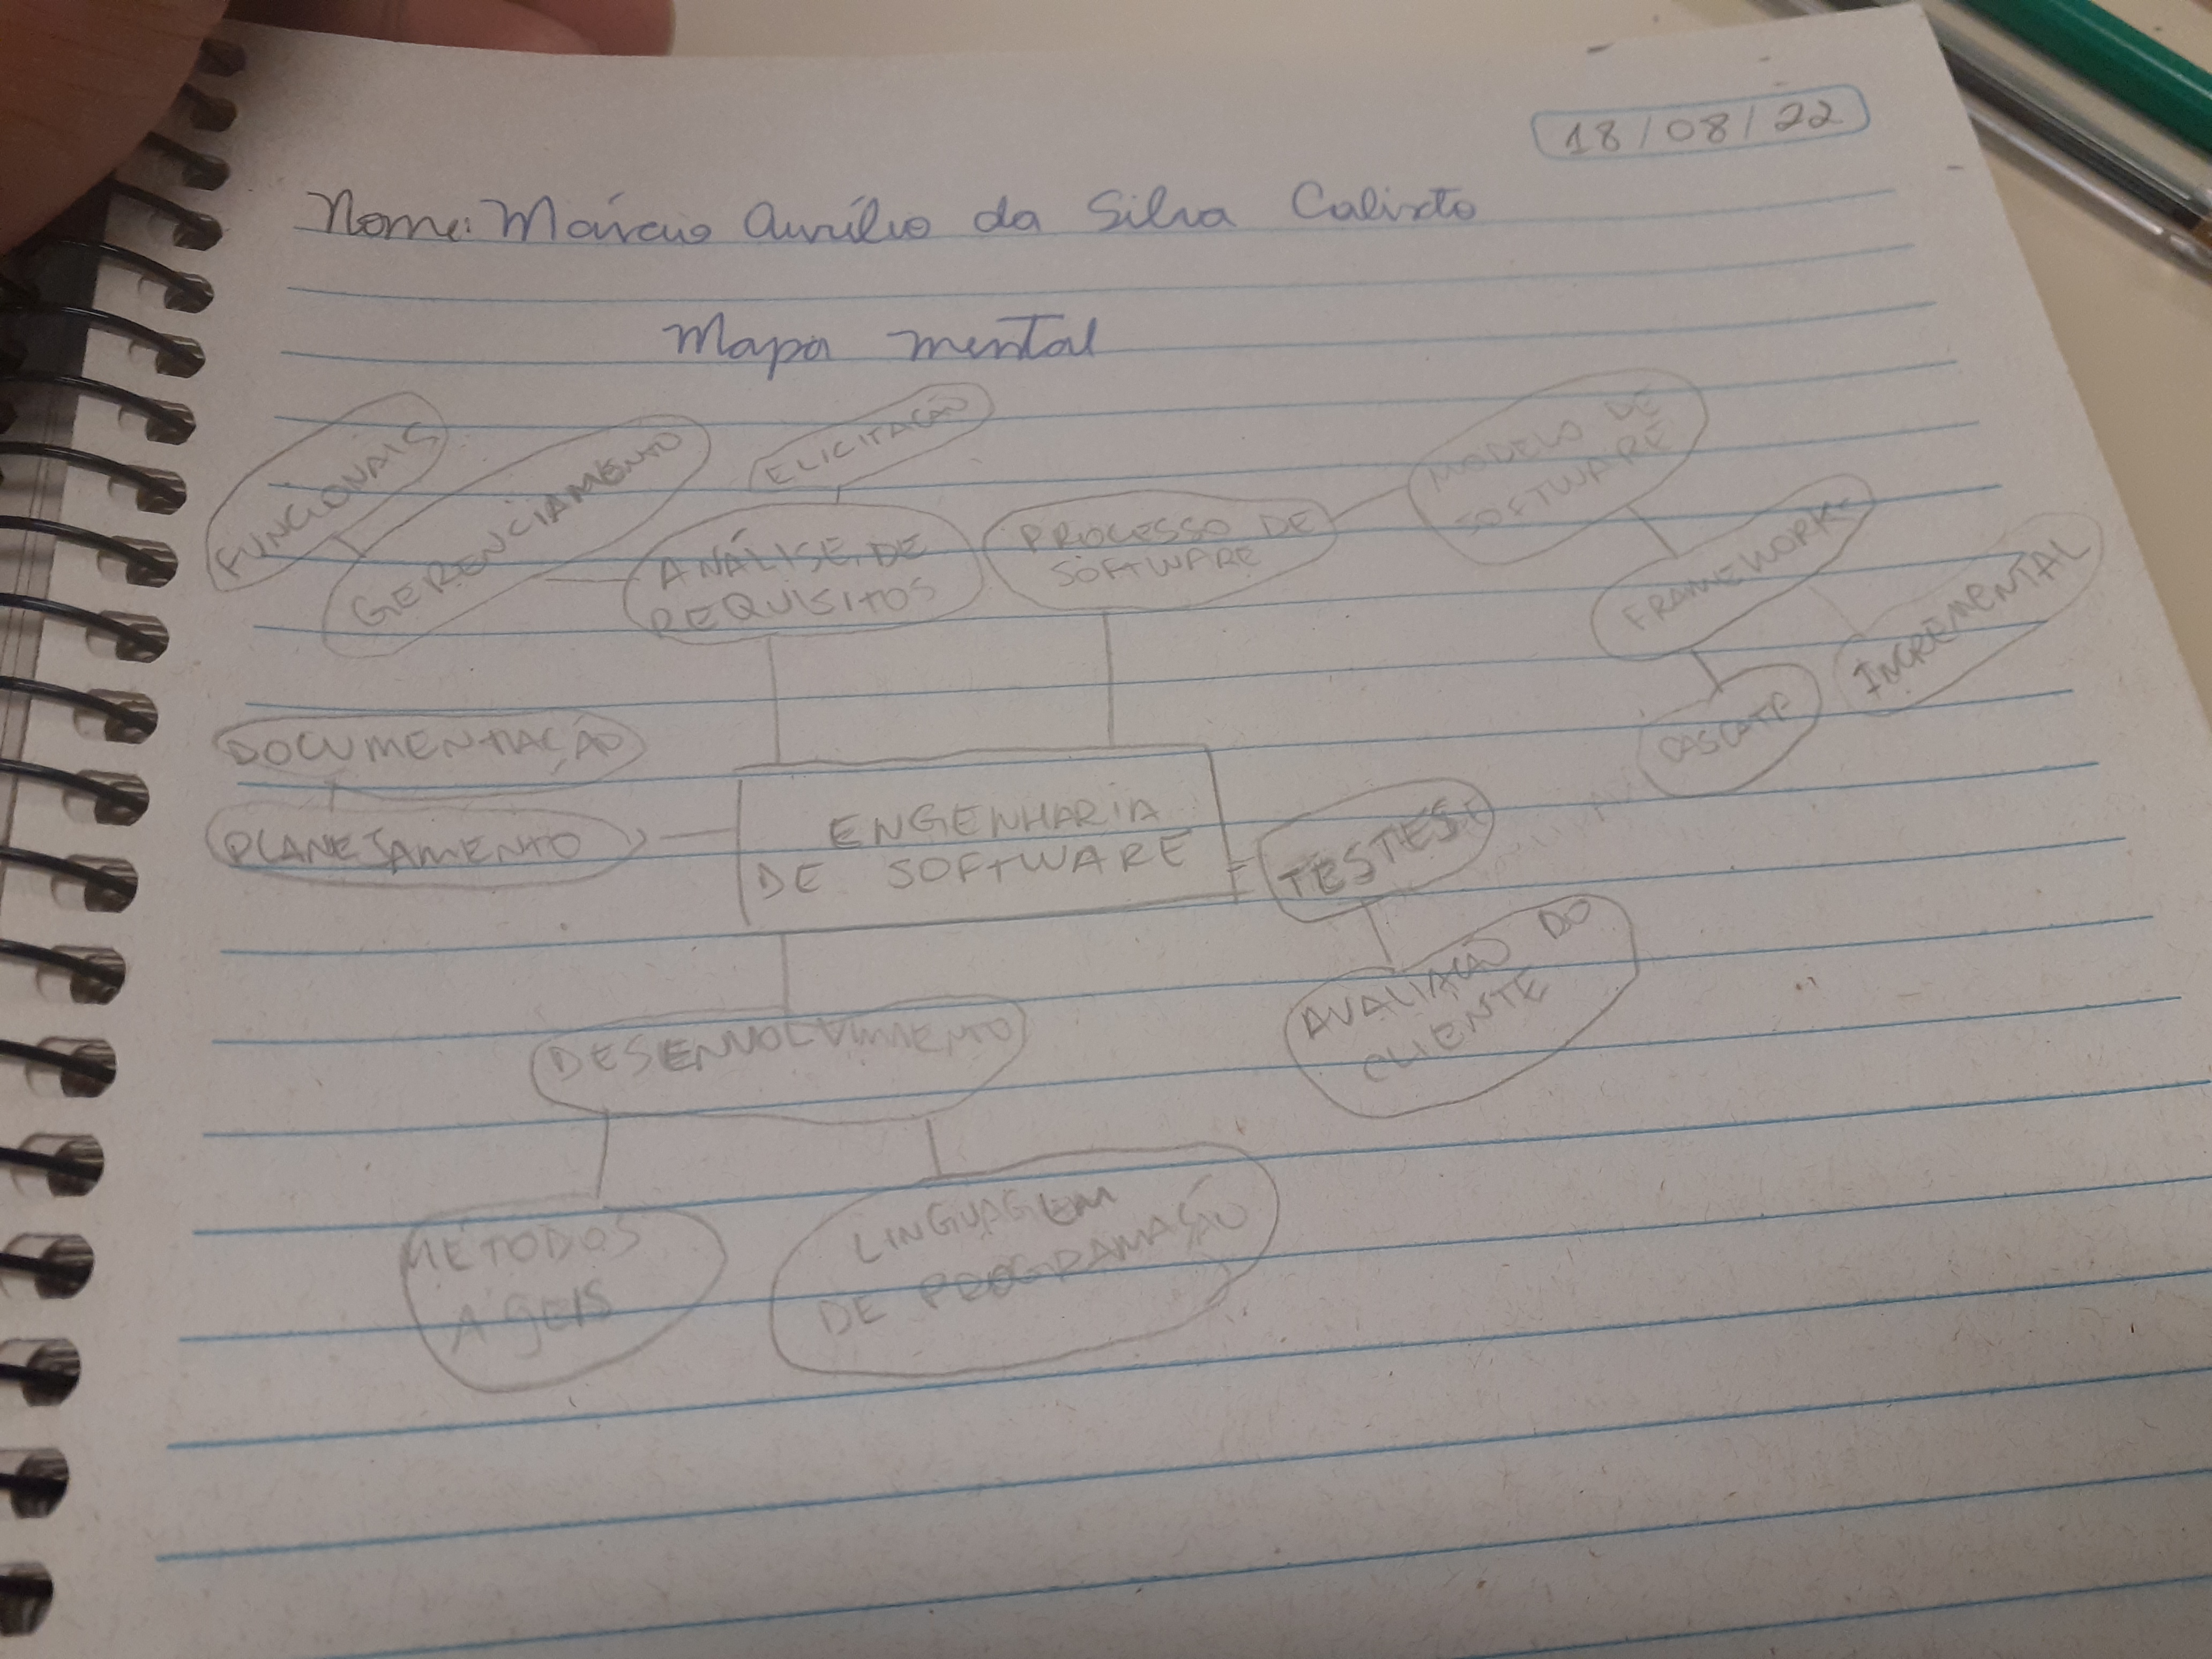 18/08/22
Nome: Márcio Aurélio da Silva Calixto
Mapa mental
FUNCIONAIS
GERENCIAMENTO
ELICITAÇÃO
ANÁLISE DE
REQUISITOS
PROCESSO DE
SOFTWARE
MODELO DE
SOFTWARE
FRAMEWORK
INCREMENTAL
CASCATA
DOCUMENTAÇÃO
PLANEJAMENTO
ENGENHARIA
DE SOFTWARE
TESTES
AVALIAÇÃO DO
CLIENTE
DESENVOLVIMENTO
MÉTODOS
ÁGEIS
LINGUAGEM
DE PROGRAMAÇÃO